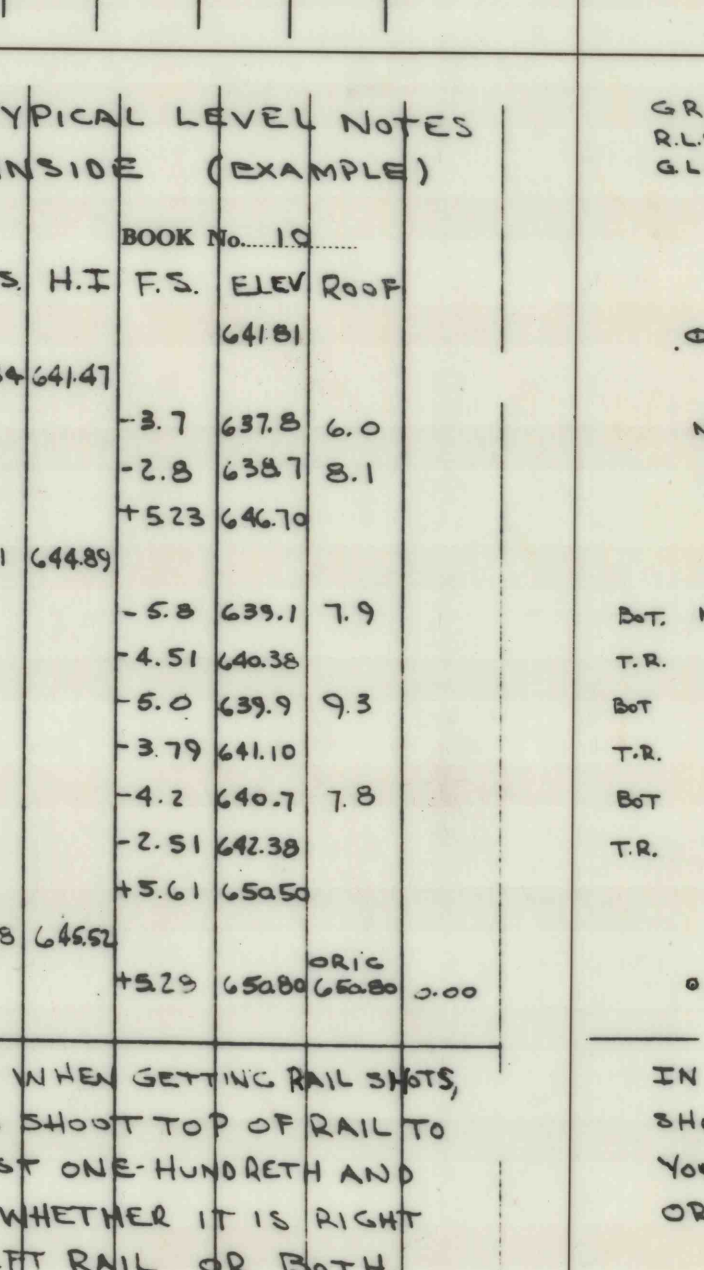 YPICAL LEVEL NOTES
INSIDE (EXAMPLE)
BOOK No. 10
S. H.I F.S. ELEV ROOF
641.81
4 641.47
-3.7 637.8 6.0
-2.8 638.7 8.1
+5.23 646.70
1 644.89
-5.8 639.1 7.9
-4.51 640.38
-5.0 639.9 9.3
-3.79 641.10
-4.2 640.7 7.8
-2.51 642.38
+5.61 650.50
8 645.52
ORIG
+5.28 650.80 650.80 0.00
WHEN GETTING RAIL SHOTS,
SHOOT TOP OF RAIL TO
ST ONE-HUNDRETH AND
WHETHER IT IS RIGHT
EFT RAIL OR BOTH
GR
R.L.
GL
BOT.
T.R.
BOT
T.R.
BOT
T.R.
IN
SHO
YOU
OR